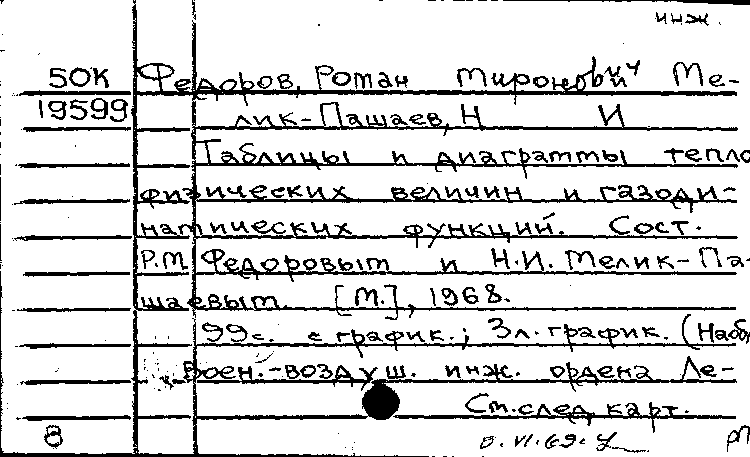 инж.
50К Федоров, Роман Миронович и Ме-
19599 лик-Пашаев, Н И
Таблицы и диаграммы тепло
физических величин и газоди-
намических функций. Сост.
Р.М Федоровым и Н.И. Мелик-Па-
шаевым. [М.], 1968.
99с. с график.; 3л. график. (Наб
Воен.-воздуш. инж. ордена Ле-
См. след. карт.
8 VI.69. рп